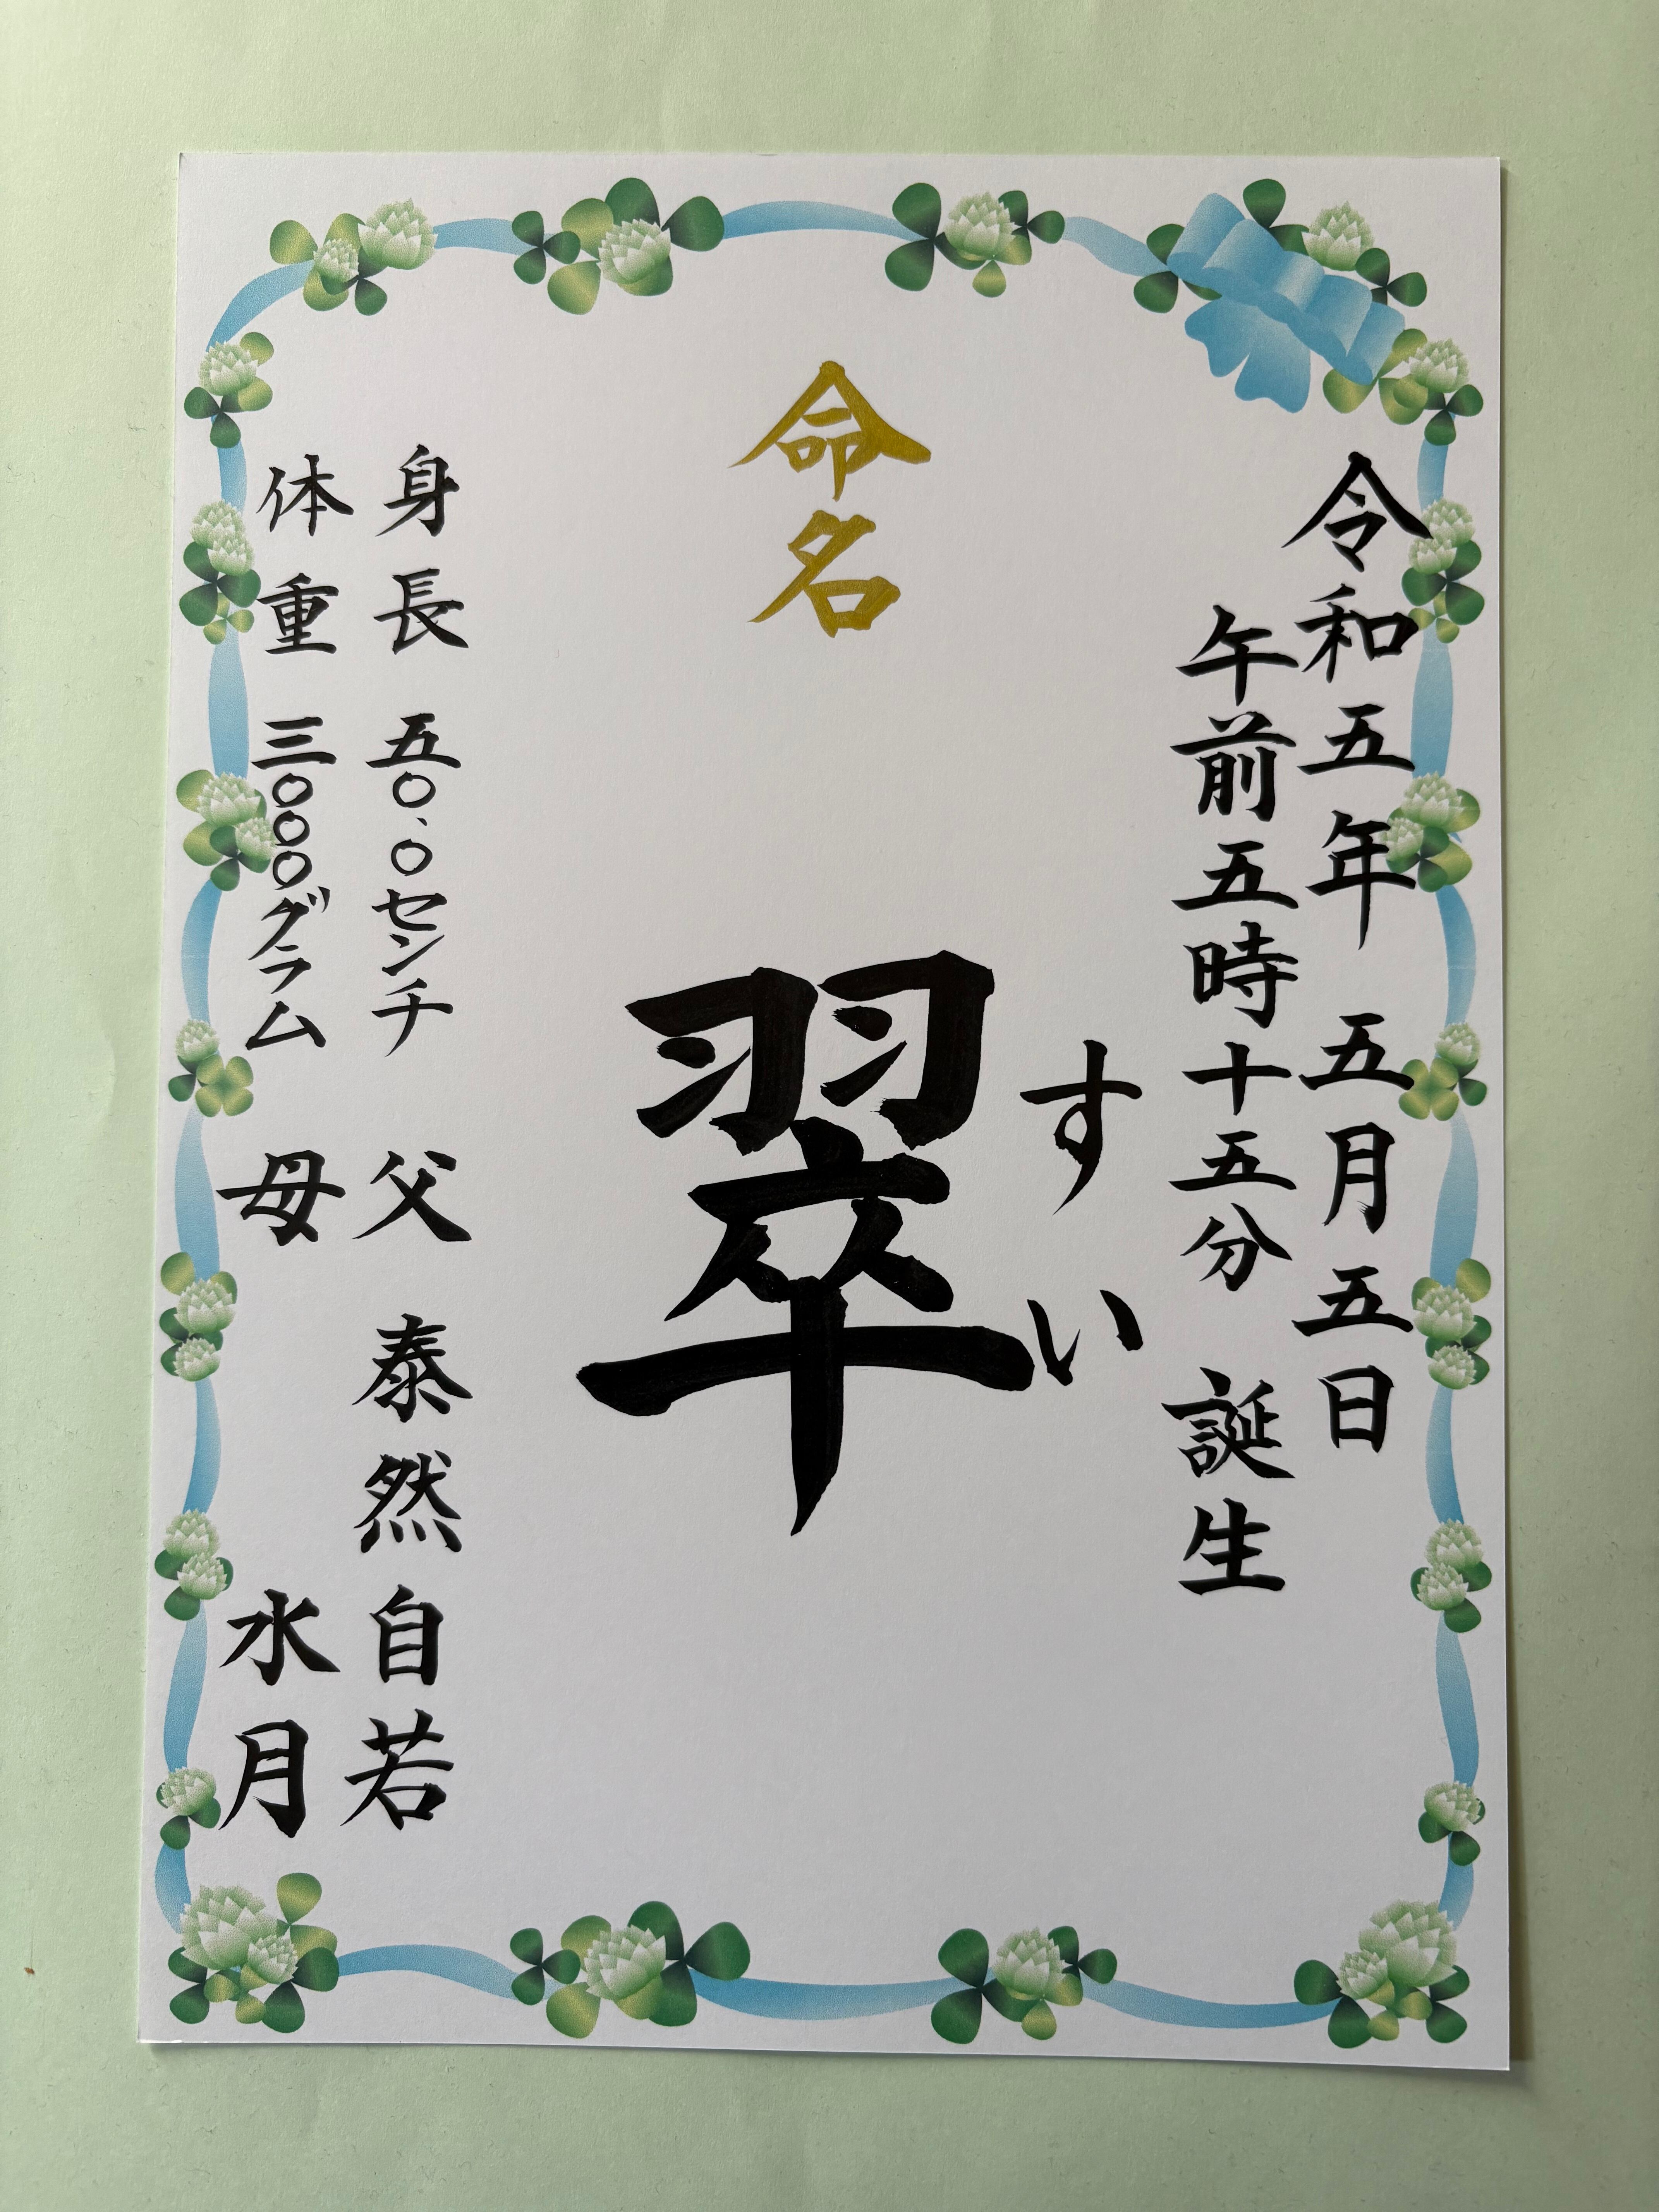 令和五年 五月五日
午前五時十五分 誕生
命名
すい
翠
身長 五〇.〇センチ
体重 三〇〇〇グラム
父 泰然自若
母 水月